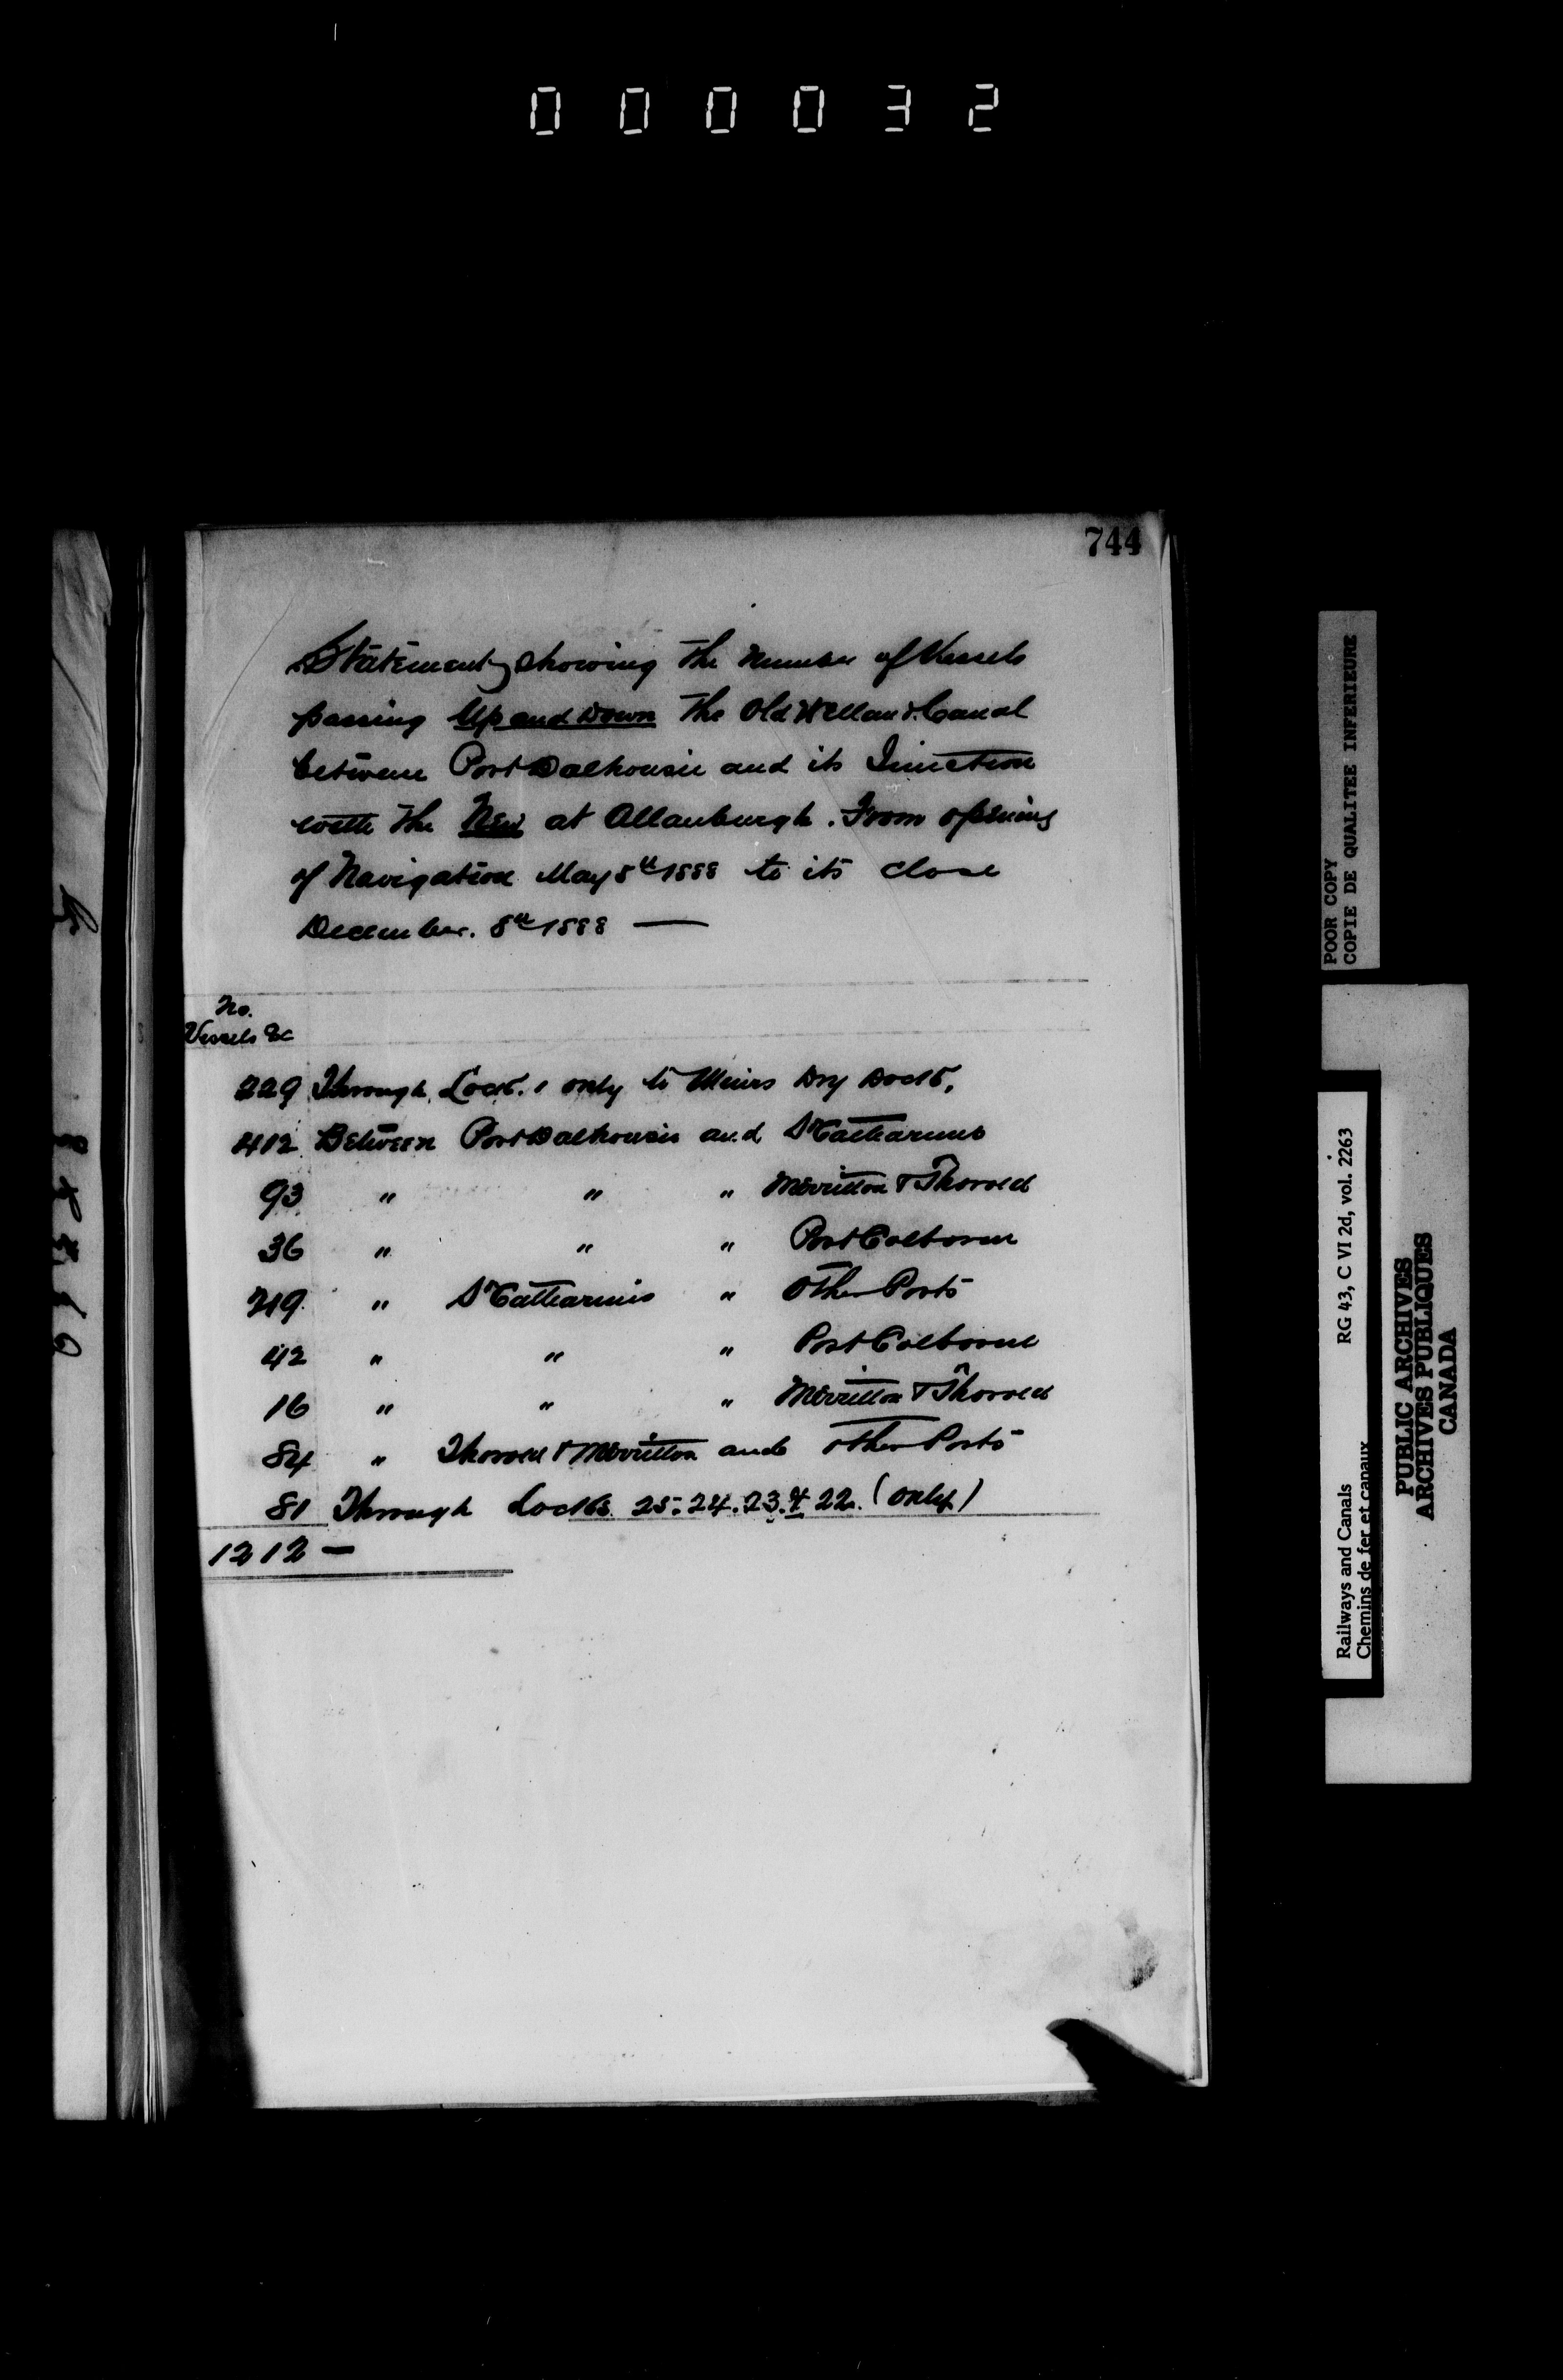 000032
744
Statement showing the number of Vessels
passing Up and Down the Old Welland Canal
between Port Dalhousie and its Junction
with the New at Allanburgh. From opening
of Navigation May 8th 1888 to its close
December. 8th 1888 —
No.
Vessels &c
229 Through Lock. 1 only to Muirs Dry Dock,
412 Between Port Dalhousie and St Catharines
93 " " " Merritton & Thorold
36 " " " Port Colborne
219 " St Catharines " Other Ports
42 " " " Port Colborne
16 " " " Merritton & Thorold
84 " Thorold & Merritton and other Ports
81 Through Locks 25. 24. 23. & 22. (only)
1212 —
POOR COPY
COPIE DE QUALITEE INFERIEURE
Railways and Canals RG 43, C VI 2d, vol. 2263
Chemins de fer et canaux
PUBLIC ARCHIVES
ARCHIVES PUBLIQUES
CANADA